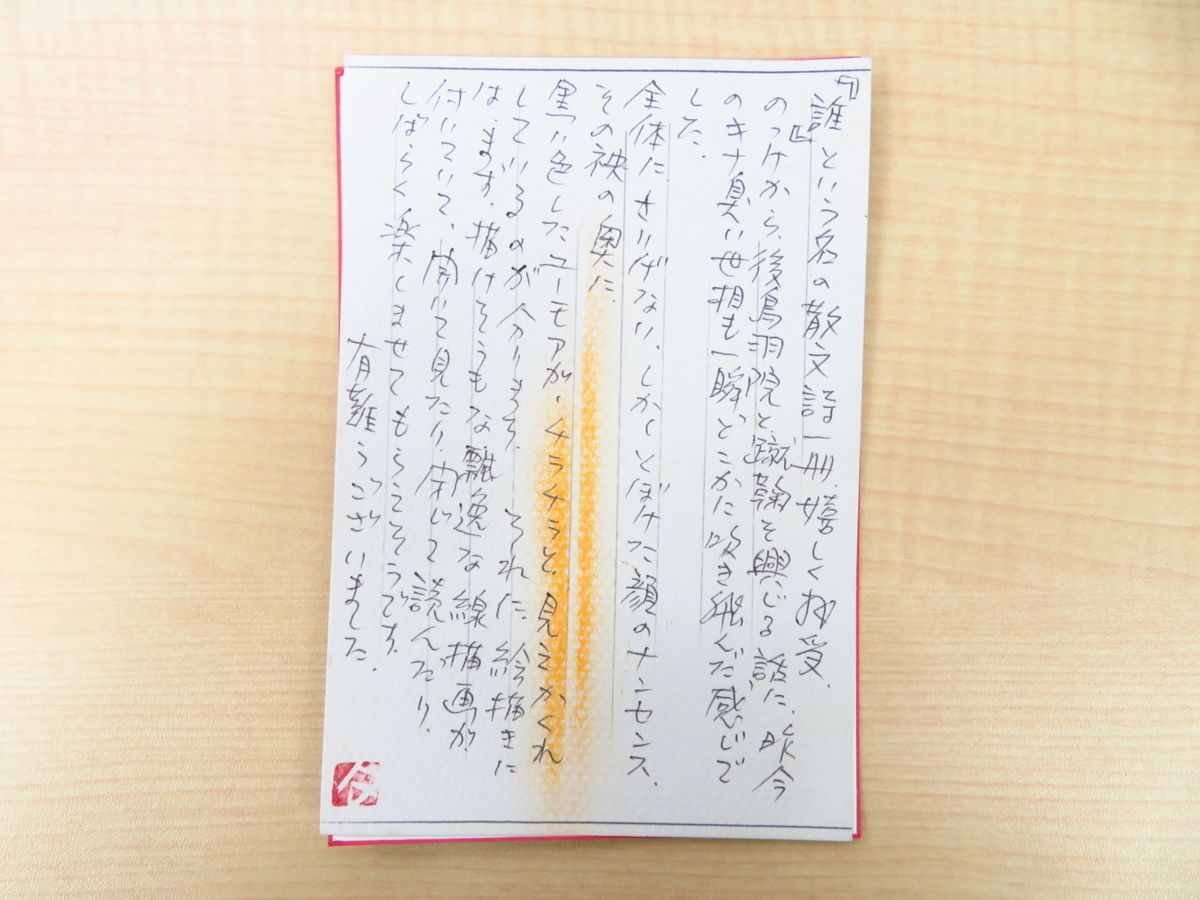 『誰』という名の散文詩一册、嬉しく拝受.
のっけから、後鳥羽院と蹴鞠を興じる話に、昨今
のキナ臭い世相も一瞬、どこかに吹き飛んだ感じで
した.
全体にさりげない、しかしとぼけた顔のナンセンス、
その袂の奥に、
黒い色したユーモアが・チラチラと、見えかくれ
しているのが分ります. それに絵描きに
は.ます.描けそうもな飄逸な線描画が
付いていて、開いて見たり、閉じて読んだり、
しばらく楽しませてもらえそうです.
有難うございました.